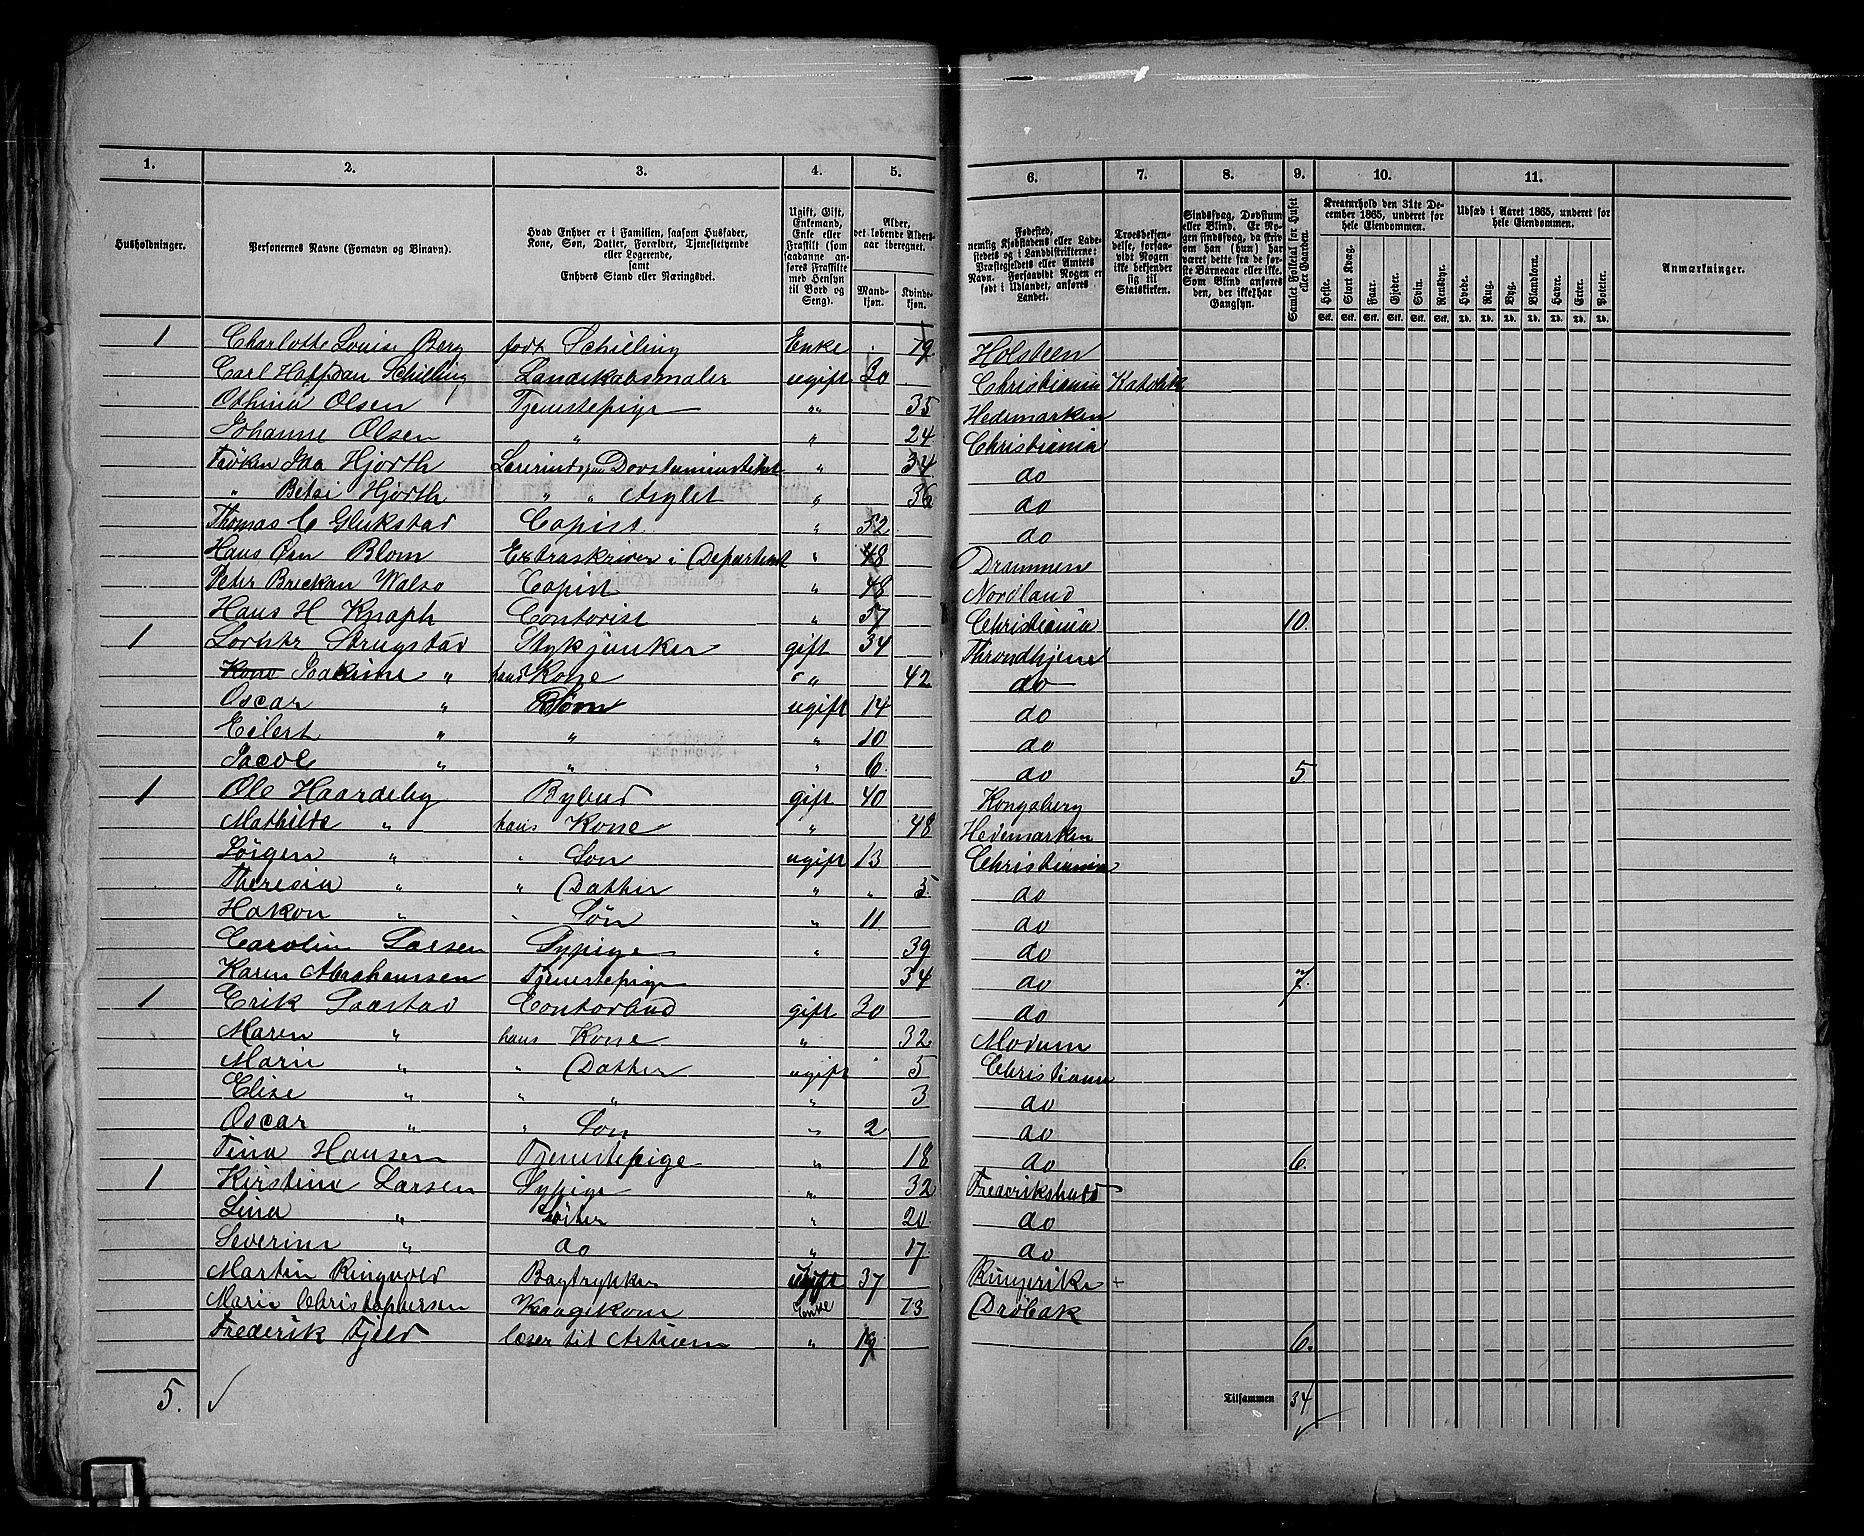 1. 2. 3. 4. 5. 6. 7. 8. 9. 10. 11.
Husholdninger.
Personernes Navne (Fornavn og Binavn).
Hvad Enhver er i Familien, saasom Husfader, Kone, Søn, Datter, Forældre, Tjenestetyende eller Logerende, samt Enhvers Stand eller Næringsvei.
Ugift, Gift, Enkemand, Enke eller Fraskilt (som saadanne anføres Fraskilte med Hensyn til Bord og Seng).
Alder, det løbende Alders-aar iberegnet.
Mandkjøn. Kvindekjøn.
Fødested, nemlig Kjøbstadens eller Ladestedets og i Landdistrikterne: Præstegjeldets eller Amtets Navn. Forsaavidt Nogen er født i Udlandet, anføres Landet.
Troesbekjendelse, forsaavidt Nogen ikke bekjender sig til Statskirken.
Sindssvag, Døvstum eller Blind. Er Nogen sindssvag, da skrives om han (hun) har været dette fra de første Barneaar eller ikke. Som Blind anføres den, der ikke har Gangsyn.
Samlet Folketal for Huset eller Gaarden.
Kreaturhold den 31te December 1865, underet for hele Eiendommen.
Heste. Stort Kvæg. Faar. Gjeder. Svin. Rensdyr.
Stk. Stk. Stk. Stk. Stk. Stk.
Udsæd i Aaret 1865, underet for hele Eiendommen.
Hvede. Rug. Byg. Blandkorn. Havre. Erter. Poteter.
Td. Td. Td. Td. Td. Td. Td.
Anmærkninger.
1 Charlotte Louise Berg født Schilling Enke 79 Holsteen
Carl Haffdan Schilling Landskabsmaler ugift 30 Christiania Katholik
Othina Olsen Tjenestepige " 35 Hedemarken
Johanne Olsen " " 24 Christiania
Frøken Ida Hjorth " 34 do
" Betsi Hjorth " " Asylet " 36 do
Thomas C Glukstad Copist " 52 do
Hans Blom Extraskriver i Departemt " 48 Drammen
Peter Walsø Copist " 48 Nordland
Hans H Knaph Contorist " 57 Christiania 10.
1 Strugstad Stykjunker gift 34 Throndhjem
Kone Joakime " hans Kone " 42 do
Oscar " Børn ugift 14 do
Eilert " " " 10 do
Jacob " " " 6 do 5
1 Ole Haardeby Bybud gift 40 Kongsberg
Mathilde " hans Kone " 48 Hedemarken
Jørgen " " Søn ugift 13 Christiania
Theresia " " Datter " " 5 do
Hakon " Søn " 11 do
Carolin Larsen Sypige " 39 do
Karen Abrahamssen Tjenestepige 34 do 7.
1 Erik Saastad Contorbud gift 30 do
Maren " hans Kone " 32 Modum
Marie " " Datter ugift 5 Christiania
Elise " " " " 3 do
Oscar " " Søn " 2 do
Tina Hansen Tjenestepige " 18 do 6.
1 Kirstine Larsen Sypige " 32 Frederikshald
Lina " Søster " 20 do
Severine " do " 17 do
Martin Ringvold Bogtrykker ugift 37 Ringerike +
Marie Christophersen Kaagekone Enke 73 Drøbak
Frederik Fjeld læser til Artium " 19 6.
5. ✓ Tilsammen 34 ✓